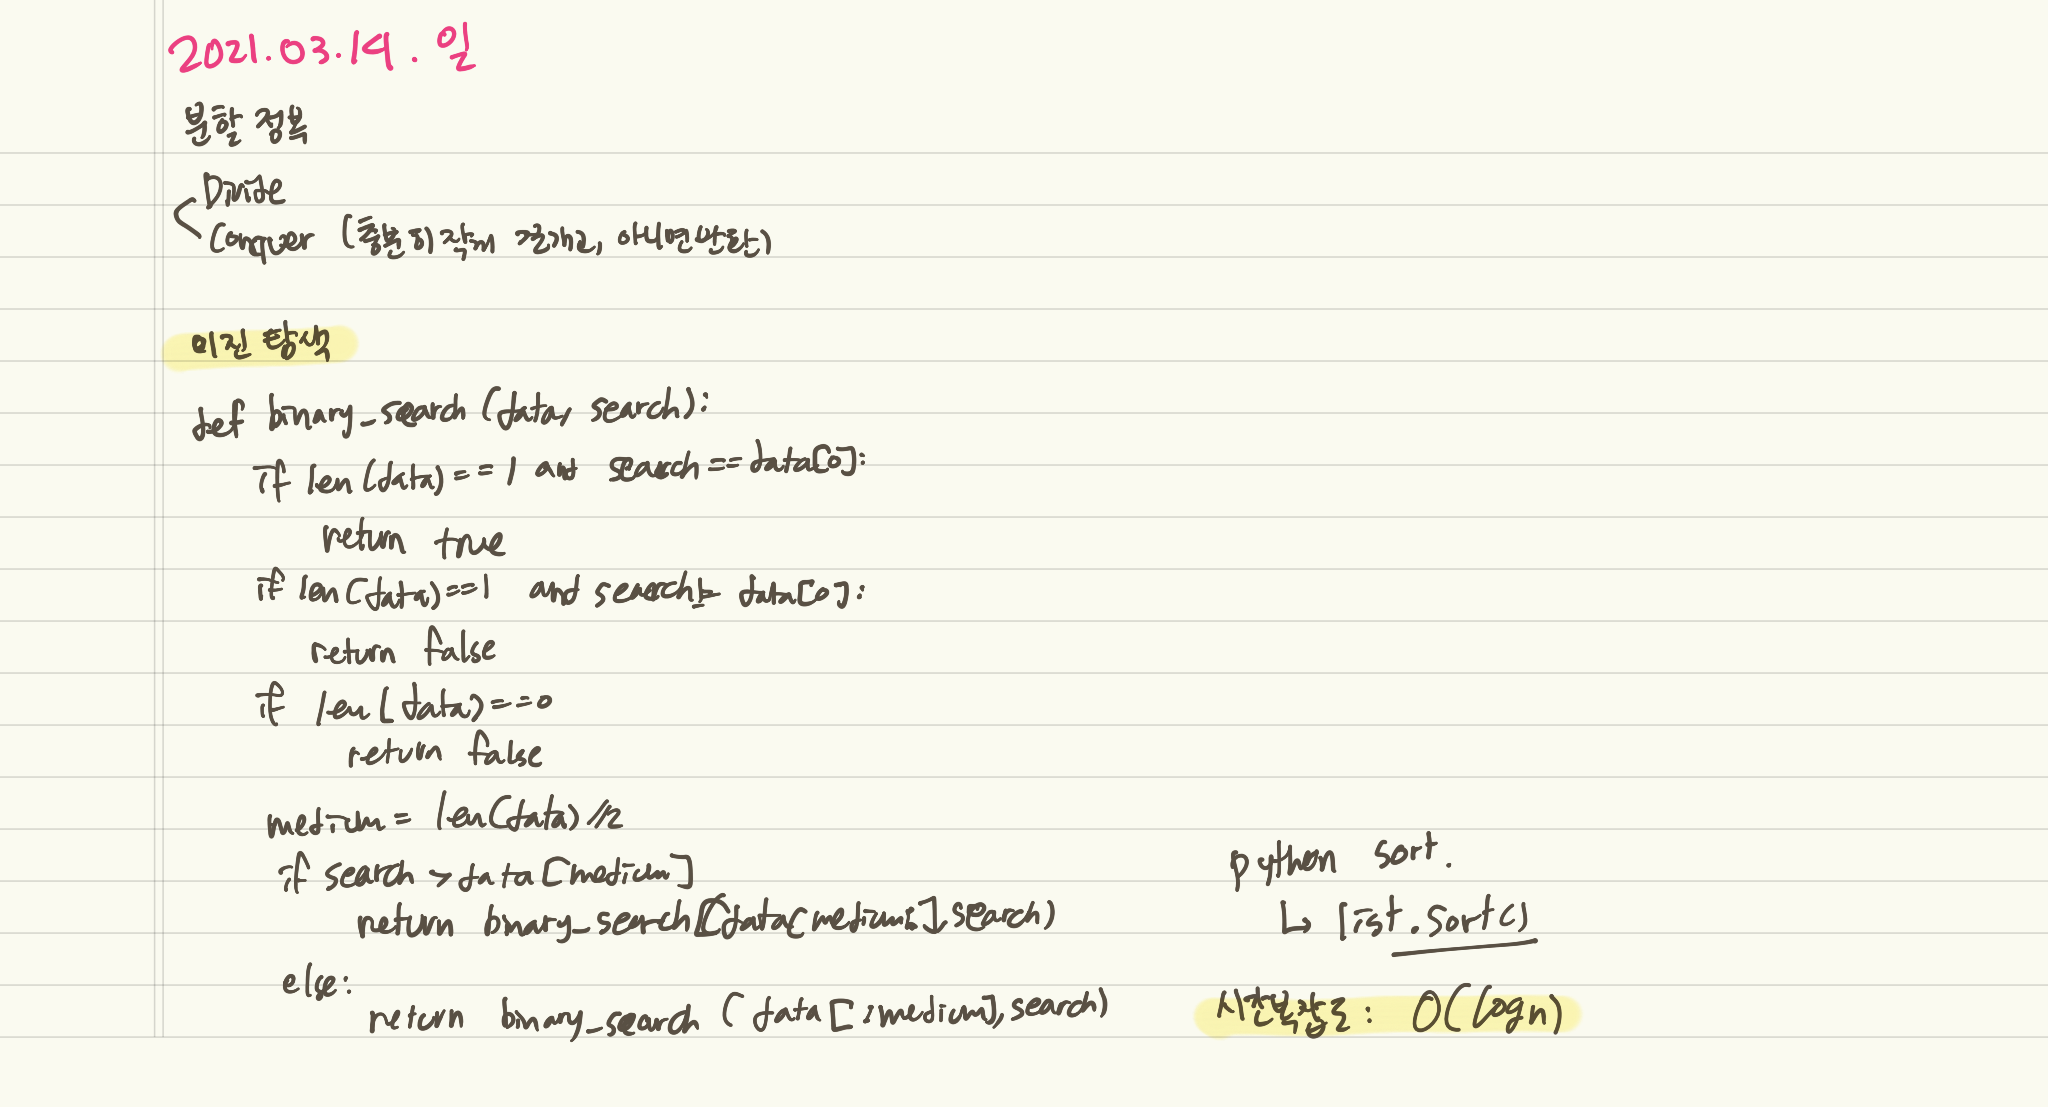 2021.03.14. 일
분할 정복
Divide
Conquer (충분히 작지 않고, 아니면 반환)
이진 탐색
def binary_search (data, search):
if len(data)==1 and search==data[0]:
return true
if len(data)==1 and search != data[0]:
return false
if len(data)==0
return false
medium = len(data)//2
if search > data[medium]
return binary_search(data[medium:], search)
else:
return binary_search (data[:medium], search)
python sort.
↳ list.sort()
시간복잡도: O(logn)